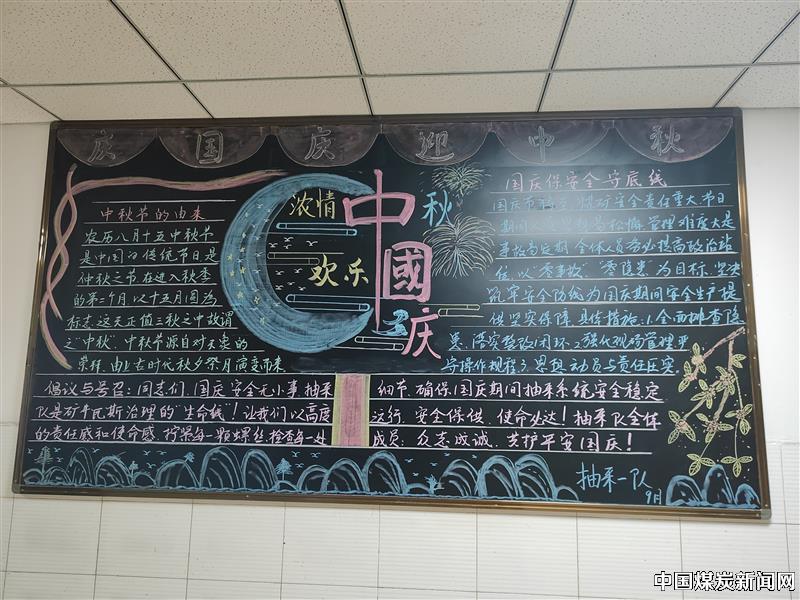 庆国庆迎中秋
中秋节的由来
农历八月十五中秋节
是中国的传统节日是
仲秋之节在进入秋季
的第二个月,以十五月圆为
标志,这天正值三秋之中故谓
之"中秋".中秋节源自对天象的
崇拜,由上古时代秋夕祭月演变而来
浓情
欢乐
中秋
國庆
国庆保安全守底线
国庆节将至,煤矿安全责任重大节日
期间 易松懈,管理难度大是
事故易发期,全体人员务必提高政治站
位,以"零事故""零隐患"为目标,坚决
筑牢安全防线为国庆期间安全生产提
供坚实保障.具体措施:1.全面排查隐
患,落实整改闭环.2.强化现场管理,严
守操作规程.3.思想动员与责任压实
倡议与号召:同志们,国庆安全无小事,抽采
队是矿井瓦斯治理的"生命线"!让我们以高度
的责任感和使命感,拧紧每一颗螺丝,检查每一处
细节,确保国庆期间抽采系统安全稳定
运行,安全保供,使命必达!抽采队全体
成员,众志成诚,共护平安国庆!
抽采一队
9月
中国煤炭新闻网